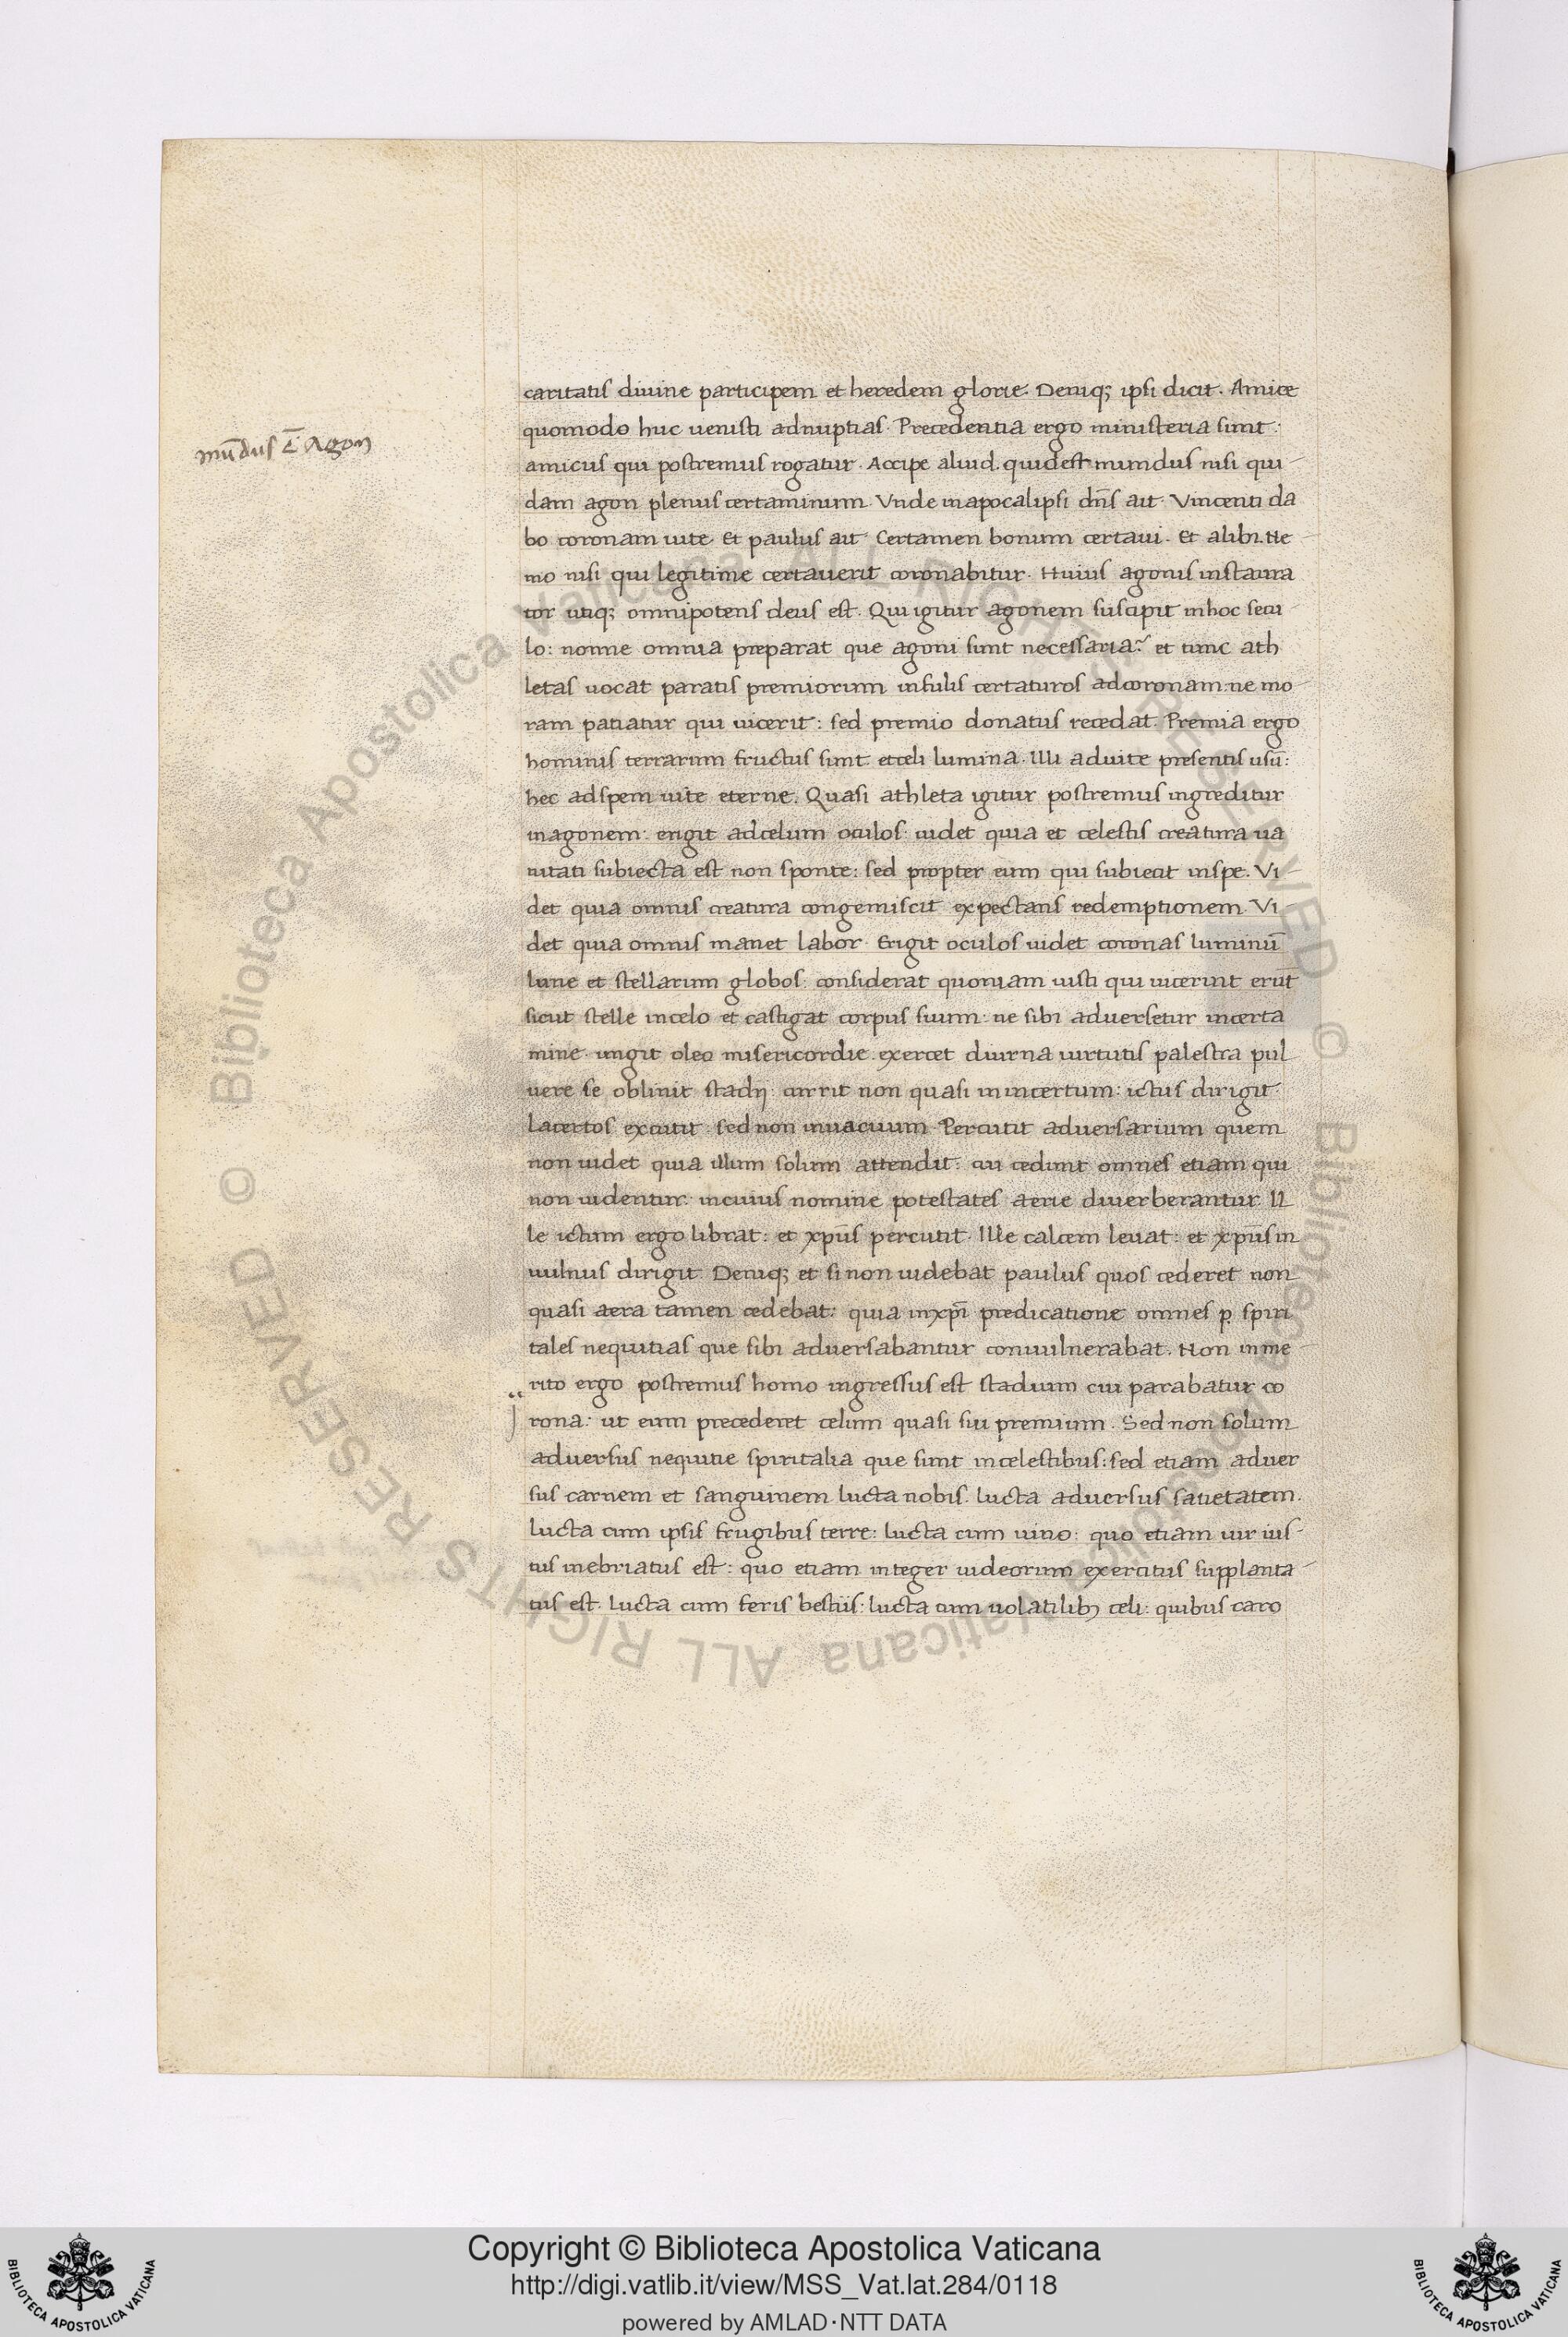 mūdus ē Agon
caritatis diuine participem et heredem glorie. Deniq; ipsi dicit. Amice
quomodo huc uenisti adnuptias. Precedentia ergo ministeria sunt:
amicus qui postremus rogatur. Accipe aliud. quidest mundus nisi qui-
dam agon plenus certaminum. Vnde inapocalipsi dn̄s ait. Vincenti da
bo coronam uite. Et paulus ait. Certamen bonum certaui. Et alibi. Ne-
mo nisi qui legitime certauerit coronabitur. Huius agonis instaura
tor utiq; omnipotens deus est. Qui igitur agonem suscipit inhoc secu-
lo: nonne omnia preparat que agoni sunt necessaria? et tunc ath
letas uocat paratis premiorum insulis certaturos adcoronam: ne mo-
ram patiatur qui uicerit: sed premio donatus recedat. Premia ergo
hominis terrarum fructus sunt etceli lumina. Illi aduite presentis usū:
hec adspem uite eterne. Quasi athleta igitur postremus ingreditur
inagonem: erigit adcelum oculos: uidet quia et celestis creatura ua
nitati subiecta est non sponte: sed propter eum qui subiecit inspe. Vi-
det quia omnis creatura congemiscit expectans redemptionem. Vi-
det quia omnis manet labor. Erigit oculos uidet coronas luminū
lune et stellarum globos: considerat quoniam iusti qui uicerint erūt
sicut stelle incelo et castigat corpus suum: ne sibi aduersetur incerta
mine. ungit oleo misericordie. exercet diurna uirtutis palestra pul
uere se oblinit stadij: currit non quasi inincertum: ictus dirigit.
Lacertos excutit: sed non inuacuum. Percutit aduersarium quem
non uidet quia illum solum attendit: cui cedunt omnes etiam qui
non uidentur: incuius nomine potestates aerie diuerberantur. Il
le ictum ergo librat: et xp̄us percutit. Ille calcem leuat: et xp̄us in
uulnus dirigit. Deniq; et si non uidebat paulus quos cederet non
quasi aera tamen cedebat: quia inxp̄i predicatione omnes p spiri
tales nequitias que sibi aduersabantur conuulnerabat. Non inme-
rito ergo postremus homo ingressus est stadium cui parabatur co
rona: ut eum precederet celum quasi sui premium. Sed non solum
aduersus nequitie spiritalia que sunt incelestibus: sed etiam aduer
sus carnem et sanguinem lucta nobis. lucta aduersus satietatem.
lucta cum ipsis frugibus terre: lucta cum uino: quo etiam uir ius-
tus inebriatus est: quo etiam integer iudeorum exercitus supplanta-
tus est. lucta cum feris bestiis: lucta cum uolatilibꝫ celi: quibus caro
© Biblioteca Apostolica Vaticana ALL RIGHTS RESERVED © Biblioteca Apostolica Vaticana ALL RIGHTS RESERVED
Copyright © Biblioteca Apostolica Vaticana
http://digi.vatlib.it/view/MSS_Vat.lat.284/0118
powered by AMLAD·NTT DATA
BIBLIOTECA APOSTOLICA VATICANA
BIBLIOTECA APOSTOLICA VATICANA